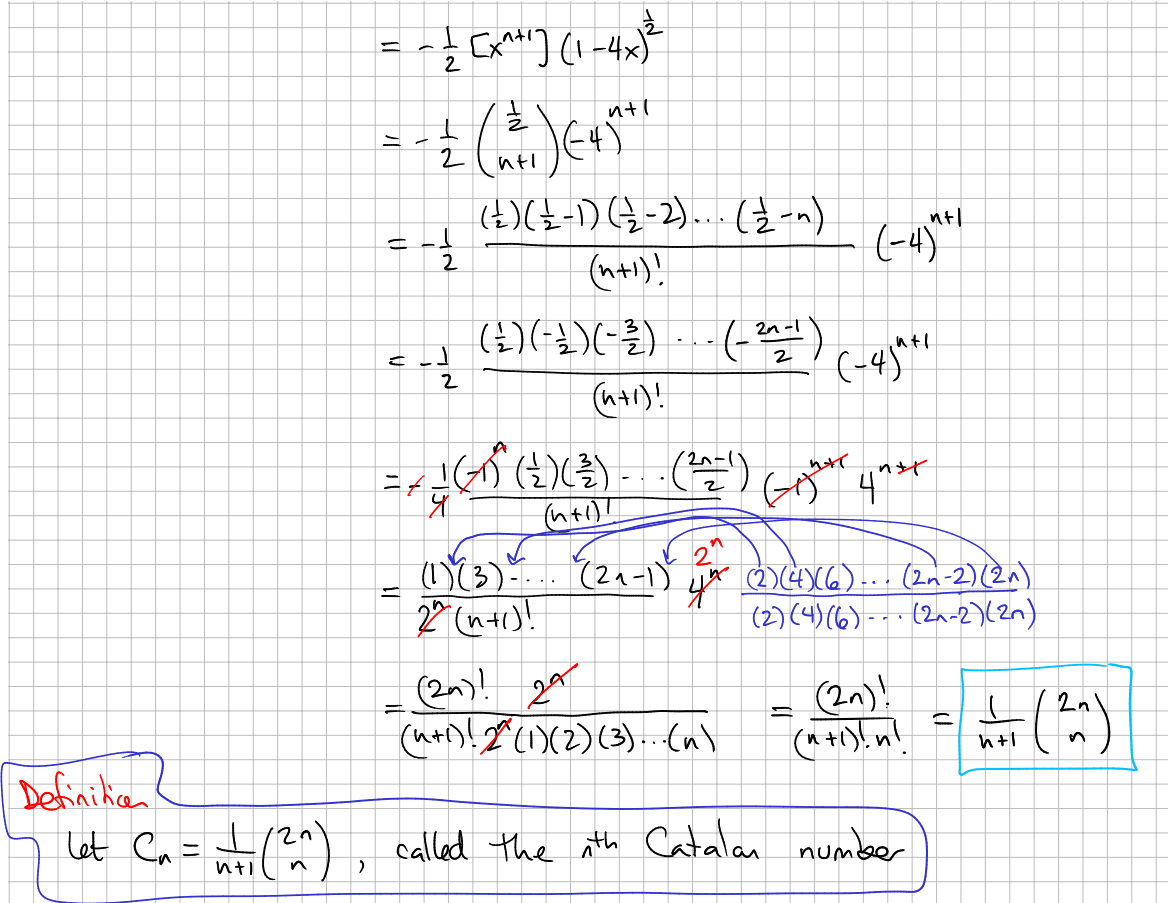 = -1/2 [x^{n+1}] (1-4x)^{1/2}
= -1/2 \binom{1/2}{n+1} (-4)^{n+1}
= -1/2 \frac{(1/2)(1/2-1)(1/2-2)...(1/2-n)}{(n+1)!} (-4)^{n+1}
= -1/2 \frac{(1/2)(-1/2)(-3/2) ...(-\frac{2n-1}{2})}{(n+1)!} (-4)^{n+1}
= -1/4 \frac{(-1)^n (1/2)(3/2)...(\frac{2n-1}{2})}{(n+1)!} (-1)^{n+1} 4^{n+1}
= \frac{(1)(3)..... (2n-1)}{2^n (n+1)!} 4^n 2^n \frac{(2)(4)(6)...(2n-2)(2n)}{(2)(4)(6)...(2n-2)(2n)}
= \frac{(2n)! 2^n}{(n+1)! 2^n (1)(2)(3)...(n)} = \frac{(2n)!}{(n+1)! n!} = \frac{1}{n+1} \binom{2n}{n}
Definition
Let C_n = \frac{1}{n+1} \binom{2n}{n}, called the nth Catalan number